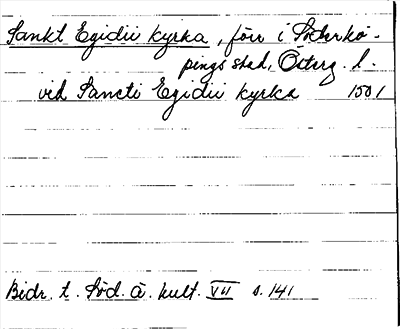 Sankt Egidii kyrka, förr i Söderkö-
pings stad, Österg. l.
vid Sancti Egidii kyrka 1501
Bidr. t. Söd. ä. kult. VII s. 141